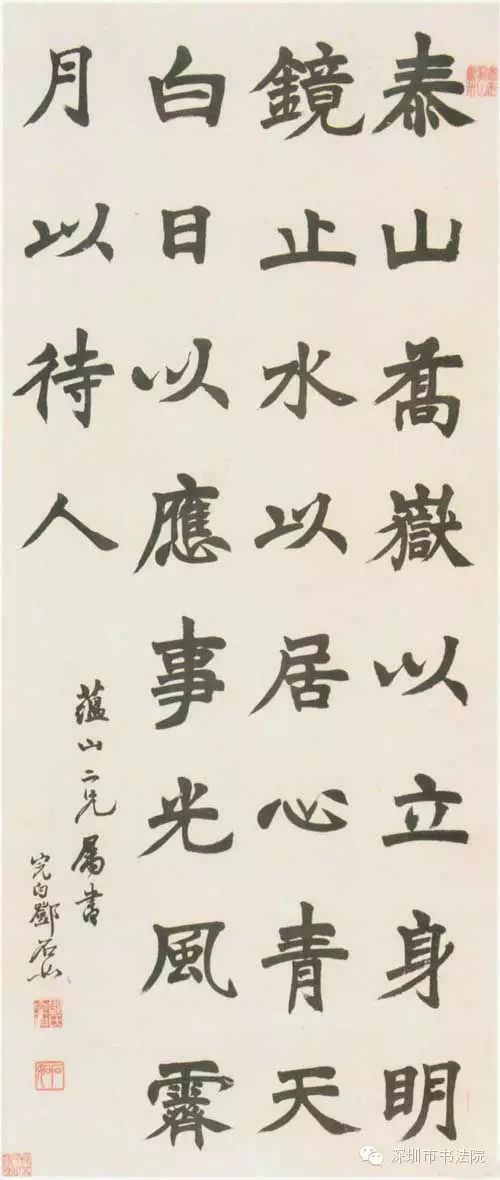 泰山喬嶽以立身明
鏡止水以居心青天
白日以應事光風霽
月以待人
蘊山二兄屬書
完白鄧石如
深圳市书法院